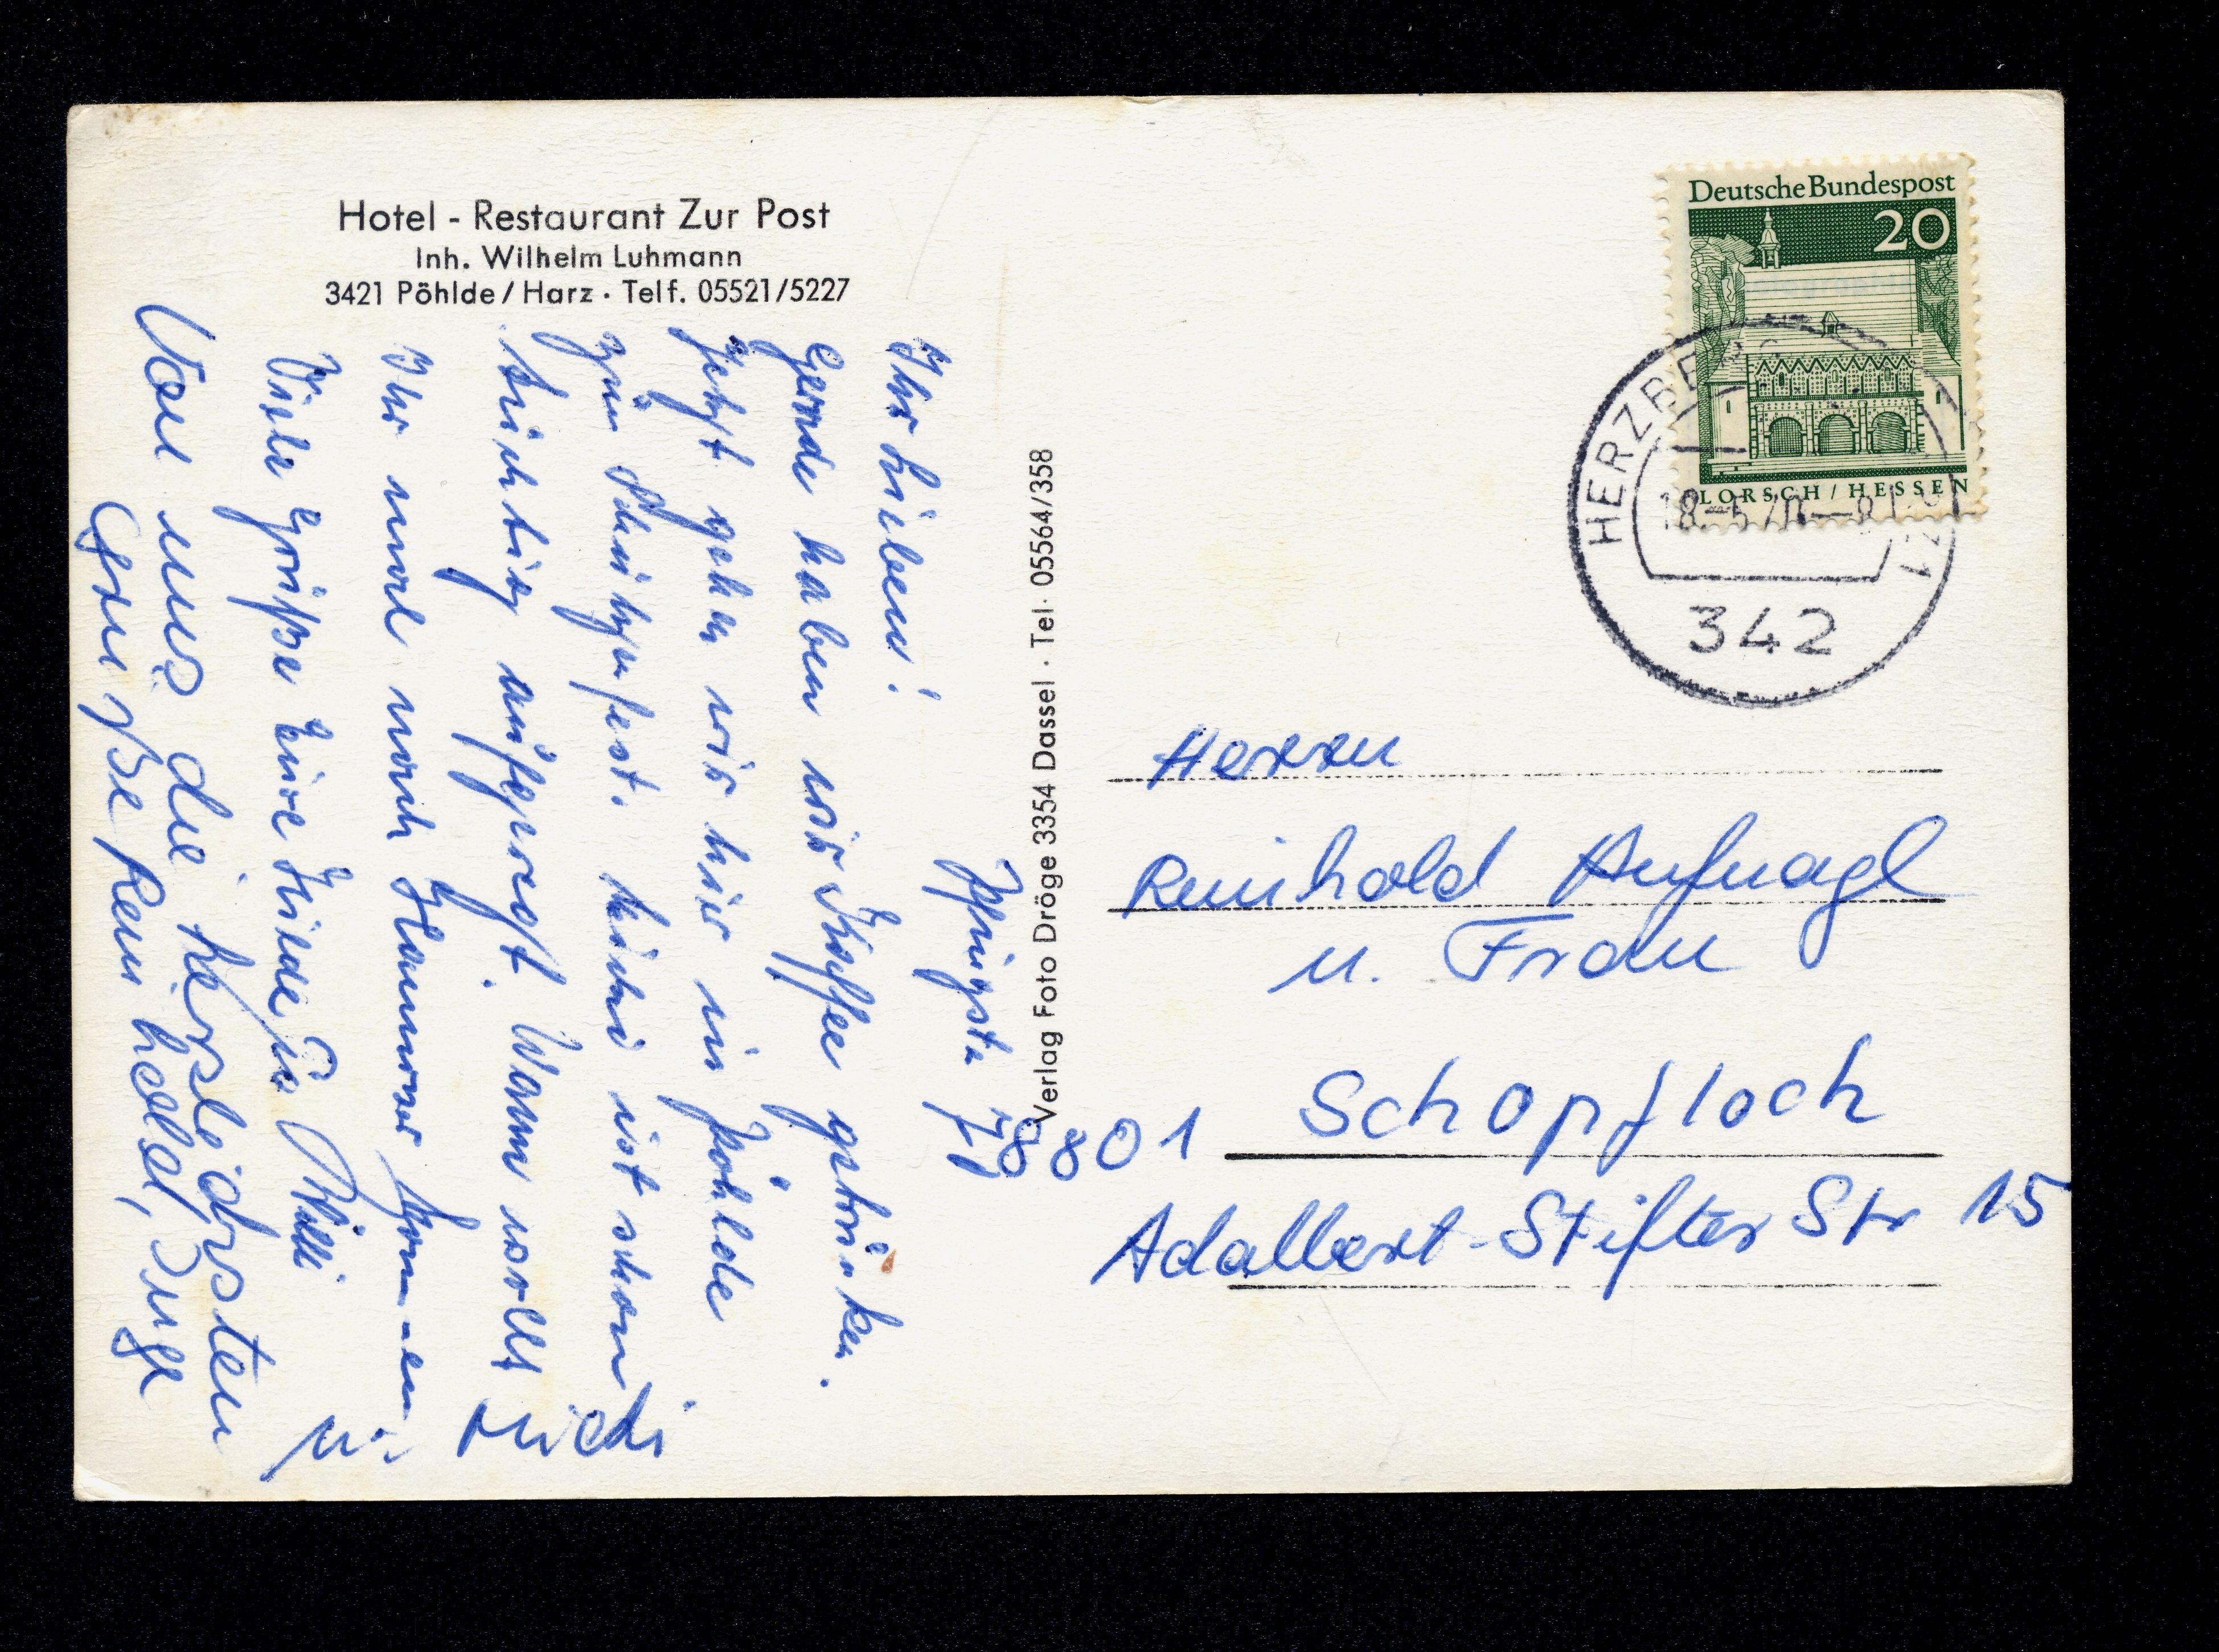 Hotel - Restaurant Zur Post
Inh. Wilhelm Luhmann
3421 Pöhlde / Harz · Telf. 05521/5227
Pfingsten 70
Ihr Lieben!
Gerade haben wir Kaffee getrinken.
Jetzt gehen wir hier in Pöhlde
zum Schützenfest. Heini ist schon
richtig aufgeregt. Wann wollt
Ihr mal nach Hannover kommen
Viele Grüße Eure Hilde
u. Michi
Von uns die herzlichsten
Grüße Reinhold, Inge
Verlag Foto Dröge 3354 Dassel · Tel. 05564/358
Deutsche Bundespost
20
LORSCH / HESSEN
HERZBERG
18.-5.70-8
342
Herrn
Reinhold Hufnagl
u. Frau
8801 Schopfloch
Adalbert-Stifter Str 15